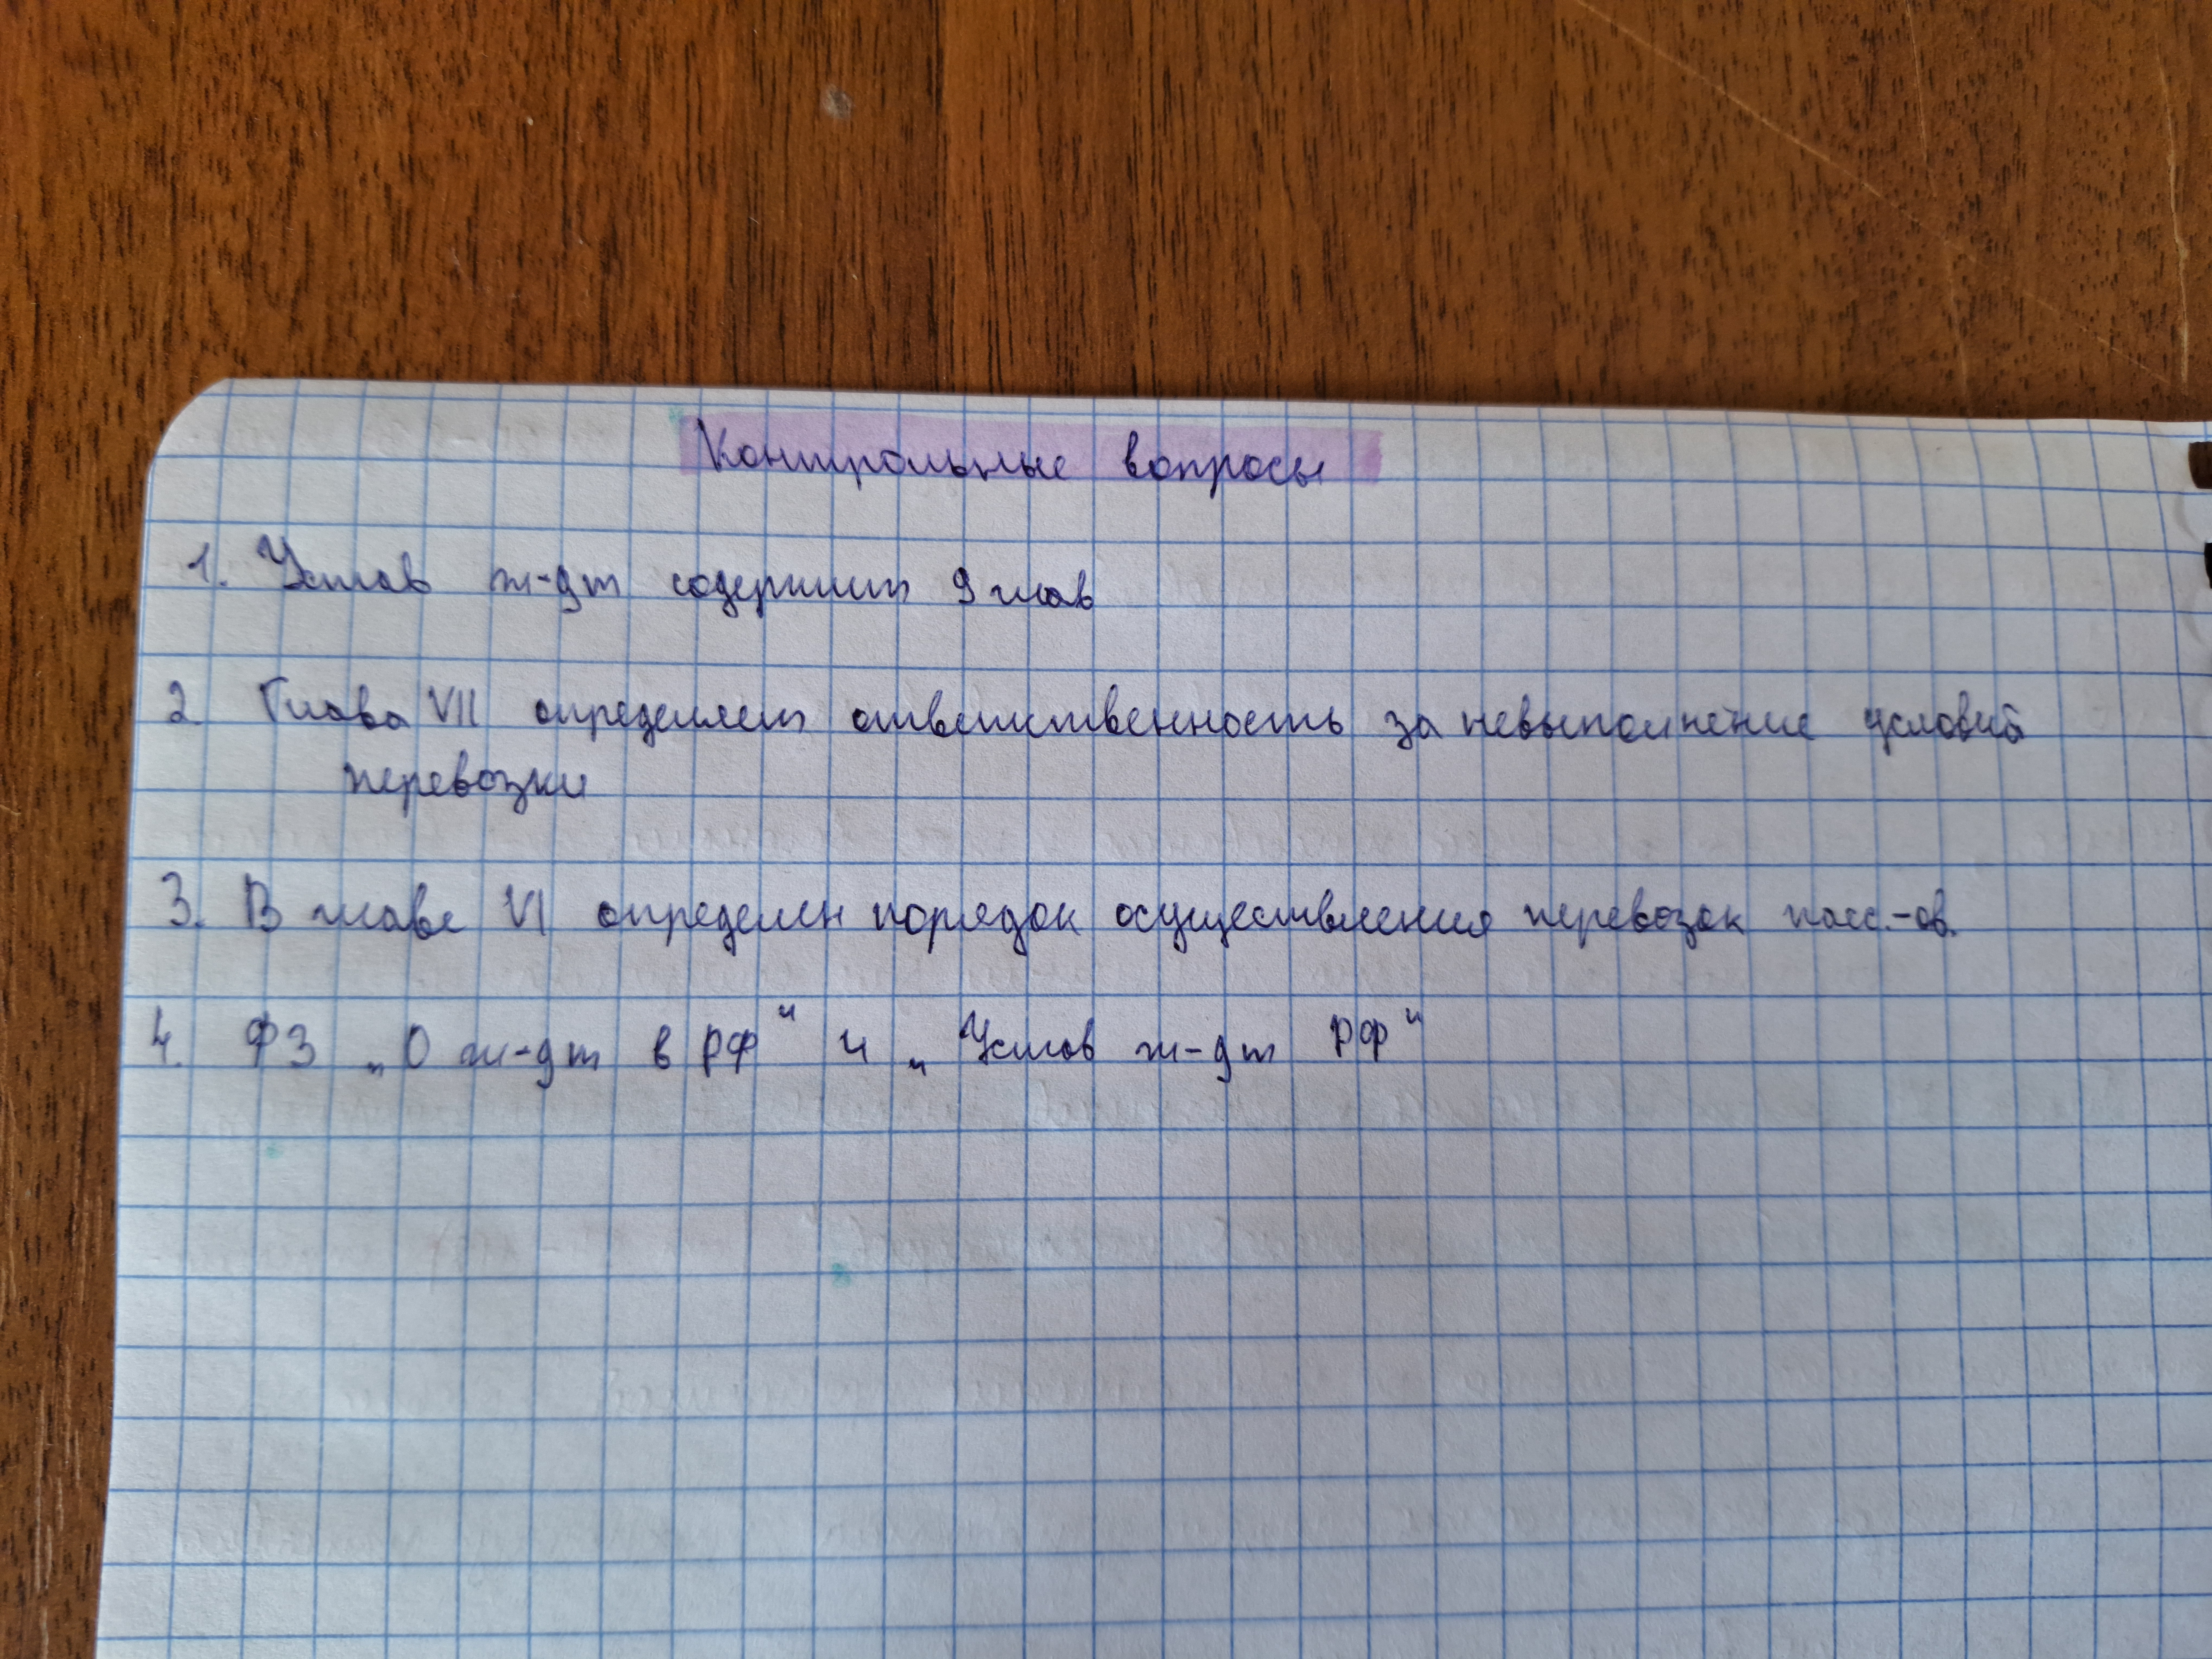 Контрольные вопросы
1. Устав ж-дт содержит 9 глав
2. Глава VII определяет ответственность за невыполнение условий
перевозки
3. В главе VI определен порядок осуществления перевозок пасс.-ов.
4. ФЗ „О ж-дт в РФ“ и „Устав ж-дт РФ“